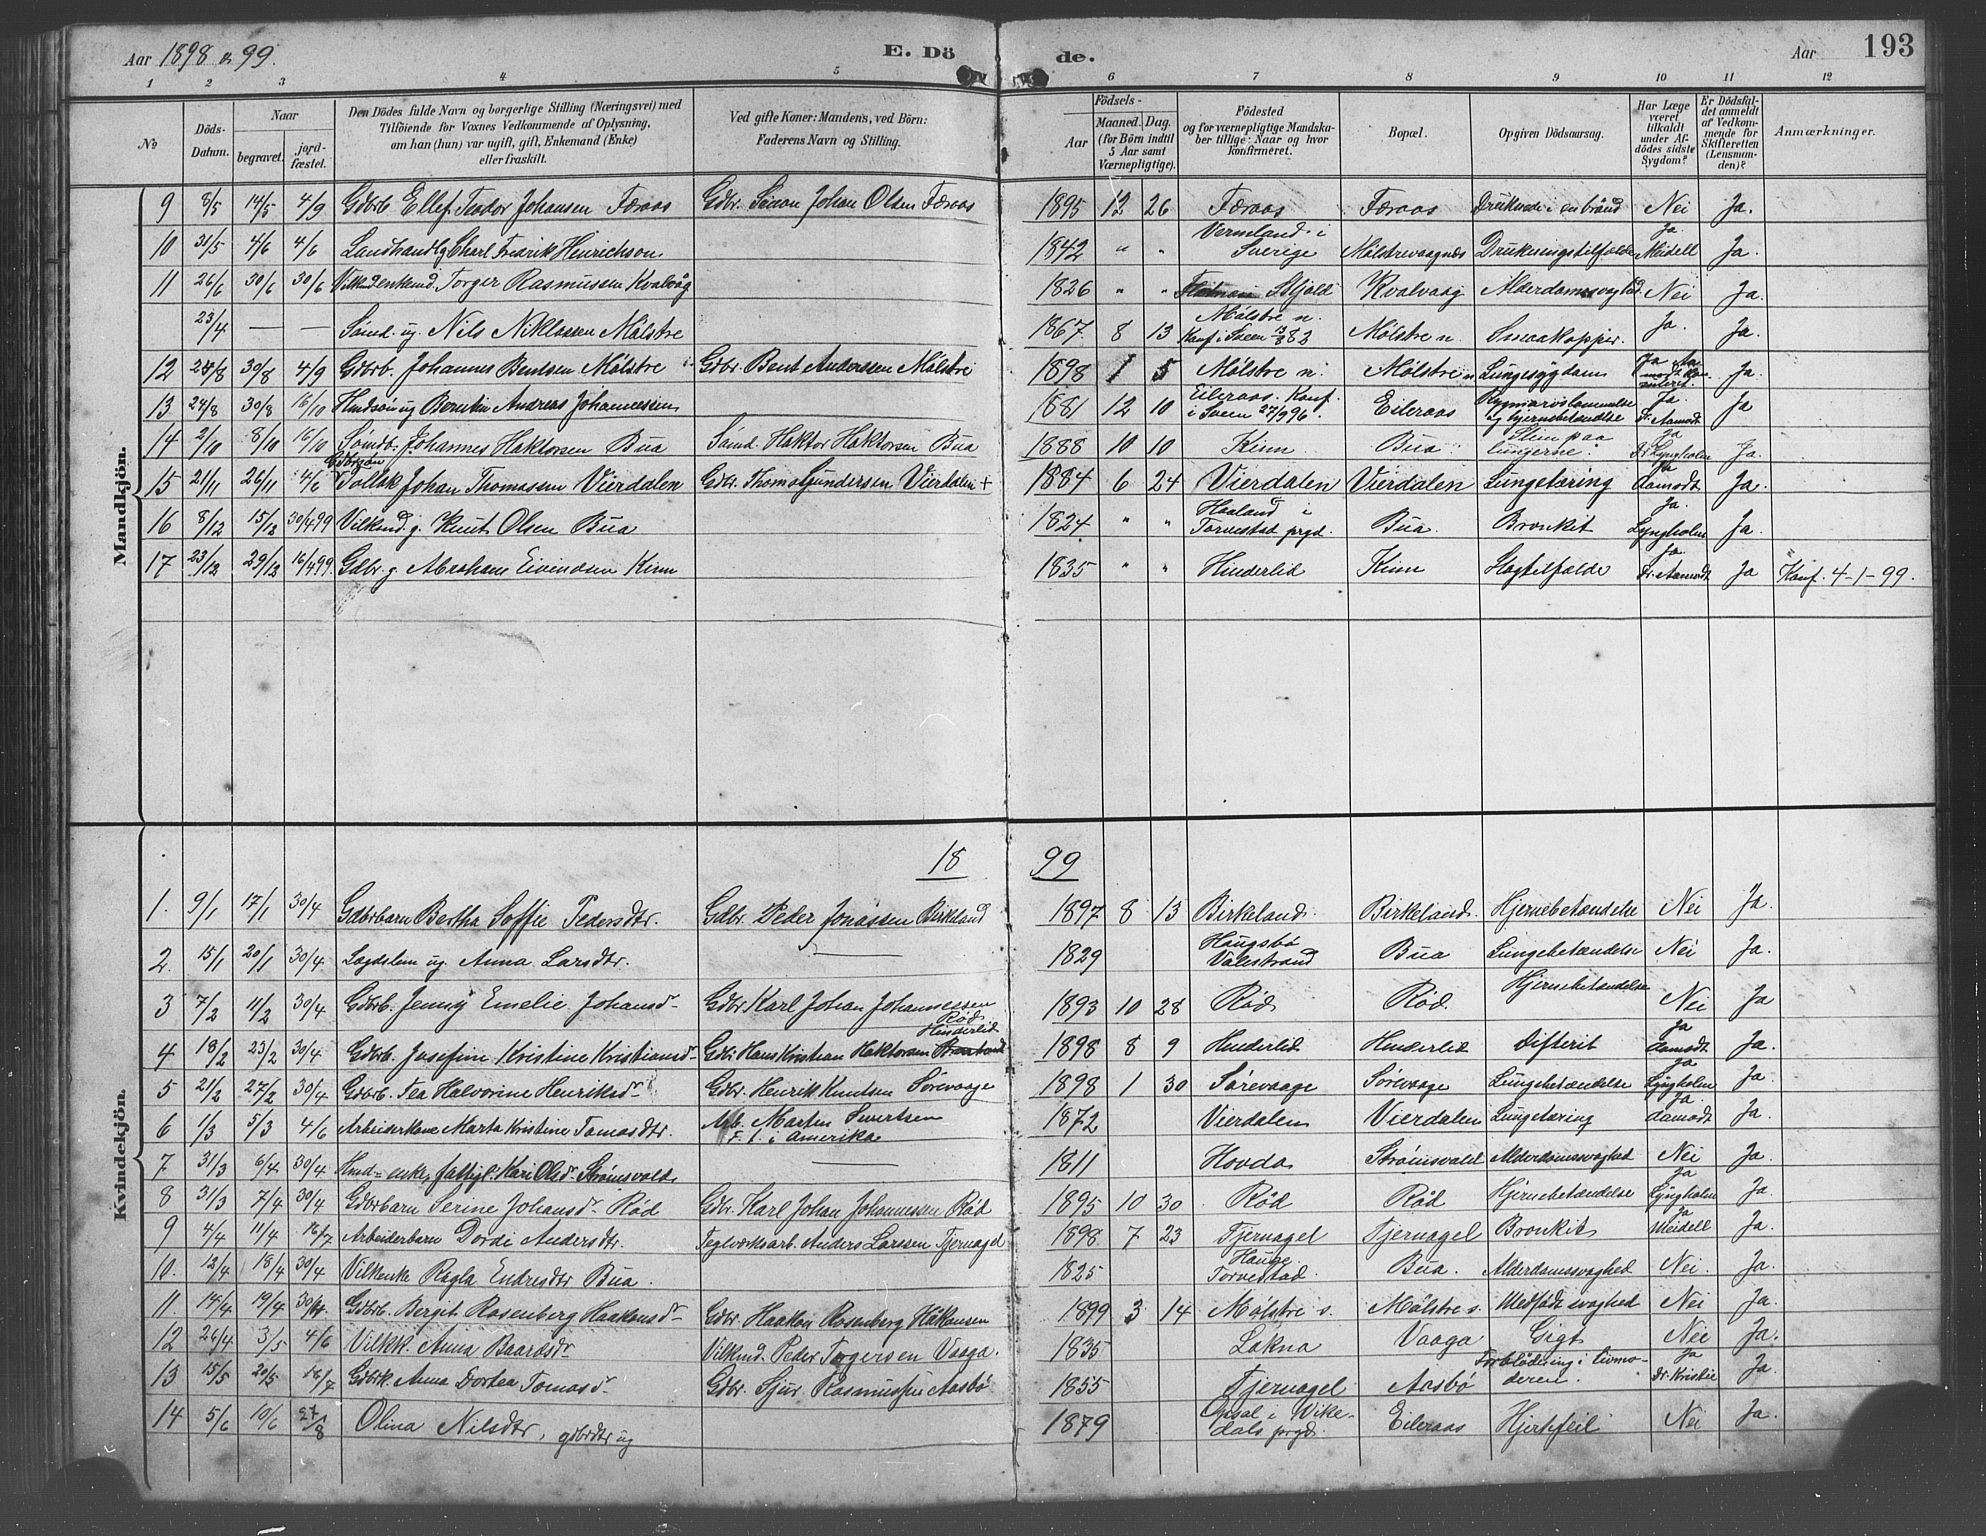 Aar 1898 & 99.
E. Dö de.
Aar
193
1 2 3 4 5 6 7 8 9 10 11 12
No
Döds-Datum.
Naar
begravet.
jord-fæstet.
Den Dödes fulde Navn og borgerlige Stilling (Næringsvei) med Tilföiende for Voxnes Vedkommende af Oplysning, om han (hun) var ugift, gift, Enkemand (Enke) eller fraskilt.
Ved gifte Koner: Mandens, ved Börn: Faderens Navn og Stilling.
Födsels-
Aar
Maaned. Dag.
(for Börn indtil 5 Aar samt Værnepligtige).
Födested og for værnepligtige Mandskaber tillige: Naar og hvor konfirmeret.
Bopæl.
Opgiven Dödsaarsag.
Har Læge været tilkaldt under Afdödes sidste Sygdom?
Er Dödsfaldet anmeldt af Vedkommende for Skifteretten (Lensmanden)?
Anmærkninger.
Mandkjön.
9 8/5 14/5 4/9 Gdbrb Ellef Teodor Johansen Færaas Gdbr. Simon Johan Olsen Færaas 1895 12 26 Færaas Færaas Druknede i en brönd Nei Ja.
10 31/5 4/6 4/6 Landhandlg Charl Fredrik Henrichson 1842 " " Vermland i Sverige Mölstrevaagnæs Drukningstilfælde Ja Meidell Ja.
11 26/6 30/6 30/6 Vilkmdenkemd. Torger Rasmusen Kvalvåg 1826 " " Skjold Kvalvaag Alderdomssvaghed. Nei Ja.
23/4 — — Sömd. ug. Nils Niklassen Mölstre 1867. 8 13 Mölstre n. Konf. i Sveen 13/8 82 Mölstre n. Smaakopper. Ja. Ja.
12 24/8 30/8 4/9 Gdbrb. Johannes Bentsen Mölstre Gdbr. Bent Andersen Mölstre 1898 1 5 Mölstre n. Mölstre n Lungesygdom Ja Aamodt Ja.
13 24/8 30/8 16/10 Hmdsön ug Berntin Andreas Johannessen 1881 12 10 Eileraas. Konf. i Sveen 27/9 96 Eileraas Rygmarvslammelse og hjernebetændelse Ja. Dr. Aamodt Ja
14 2/10 8/10 16/10 Sömdb. Johannes Haktorsen Bua Sömd. Haktor Haktorsen Bua 1888 10 10 Kinn Bua Slem paa lungerne. Ja Dr. Lyngholm Ja
15 21/11 26/11 4/6 Gdbrsön Tollak Johan Thomassen Vierdalen Gdbr. Thomas Gundersen Vierdalen + 1884 6 24 Vierdalen Vierdalen Lungetæring Ja Aamodt Ja.
16 8/12 15/12 30/4 99 Vilkmd. g. Knut Olsen Bua 1824 " " Haaland i Torvestad prgd. Bua. Bronkit Ja. Lyngholm Ja.
17 23/12 29/12 16/4 99. Gdbr. g Abraham Eivindsen Kinn 1835 " " Hinderlid Kinn Slagtilfælde Ja Dr. Aamodt Ja Konf. 4-1-99.
Kvindekjön.
1899
1. 9/1 17/1 30/4 Gdbrbarn Bertha Soffie Pedersdtr. Gdbr. Peder Jonassen Birkeland 1897 8 13 Birkeland. Birkeland. Hjernebetændelse Nei Ja.
2. 15/1 20/1 30/4 Lægdslem ug Anna Larsdtr. — 1829 Haugsbö Valestrand Bua Lungebetændelse Nei Ja.
3 7/2 11/2 30/4 Gdbrb. Jenny Emelie Johansd- Gdbr Karl Johan Johannessen Röd 1893 10 28 Röd Röd. Hjernebetændelse Nei Ja
4 18/2 23/2 30/4 Gdbrb. Josefine Kristine Kristiansd- Gdbr. Hans Kristian Haktorsen Hinderlid 1898 8 9 Hinderlid Hinderlid Difterit Ja Aamodt Ja.
5 21/2 27/2 30/4 Gdbrb. Tea Halvorine Henriksd- Gdbr. Henrik Knutsen Sörevaage 1898 1 30 Sörevaage Sörevaage Lungebetændelse Ja Lyngholm Ja.
6 1/3 5/3 4/6 Arbeiderkone Marta Kristine Tomasdtr. Arb. Martin Sivertsen F. T. i Amerika 1872 Vierdalen Vierdalen Lungetæring Ja. Aamodt Ja.
7 31/3 6/4 30/4 Hmd-enke, fattigl. Kari Olsd- Strömsvold — 1811 Hovda Strömsvold Alderdomssvaghed Nei Ja.
8 31/3 7/4 30/4 Gdbrbarn Serine Johansd- Röd Gdbr. Karl Johan Johannessen Röd 1895 10 30 Röd Röd Hjernebetændelse Ja Lyngholm Ja.
9 4/4 11/4 16/7 Arbeiderbarn Dordi Andersdtr. Teglværksarb. Anders Larssen Tjernagel 1898 7 23 Tjernagel Tjernagel Bronkit Ja Meidell Ja.
10. 12/4 18/4 30/4 Vilkenke Ragla Endresdtr Bua. 1825 Hauge. Torvestad. Bua. Alderdomssvaghed Nei. Ja.
11. 14/4 19/4 30/4 Gdbrb. Bergit Rosenberg Haakonsd- Gdbr. Haakon Rosenberg Håkonsen 1899 3 14 Mölstre s. Mölstre s. Medfödt svaghed Nei Ja.
12 26/4 3/5 4/6 Vilkk. Anna Baardsdr Vilkmd. Peder Torgersen Vaaga. 1835 Lokna Vaaga Gigt Nei Ja.
13 15/5 20/5 16/7 Gdbrk. Anna Dortea Tomasd- Gdbr. Sjur Rasmussen Aasbö 1855 Tjernagel Aasbö Forblödning i livmoderen. Ja Dr. Kristie Ja
14 5/6 10/6 27/8 Olina Nilsdtr, gdbrdtr ug 1879 Opsal i Vikedals prgd. Eileraas Hjertefeil Nei Ja.